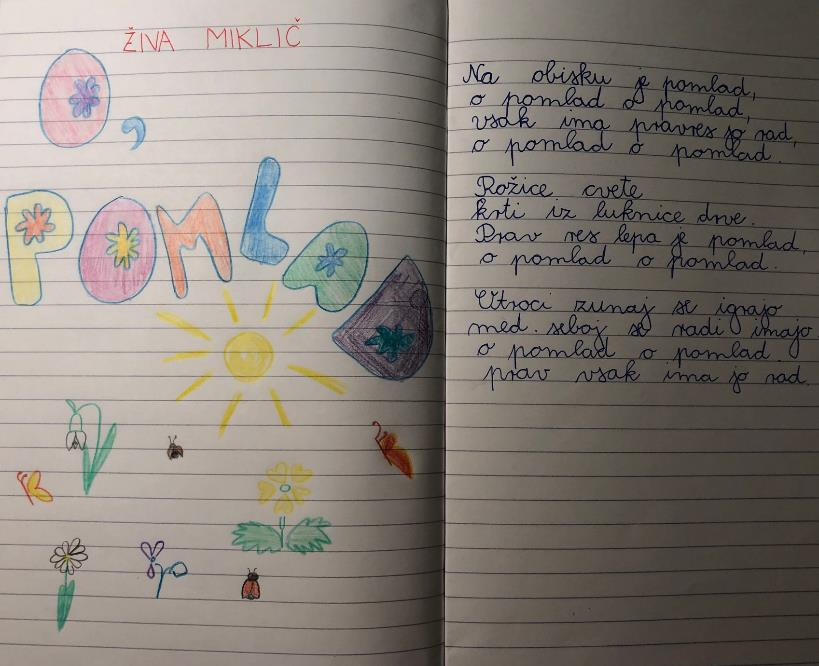 ŽIVA MIKLIČ
O,
POMLAD
Na obisku je pomlad,
o pomlad o pomlad,
vsak ima prav res jo rad,
o pomlad o pomlad.
Rožice cvete
krti iz luknice drve.
Prav res lepa je pomlad,
o pomlad o pomlad.
Otroci zunaj se igrajo
med seboj se radi imajo
o pomlad o pomlad
prav vsak ima jo rad.